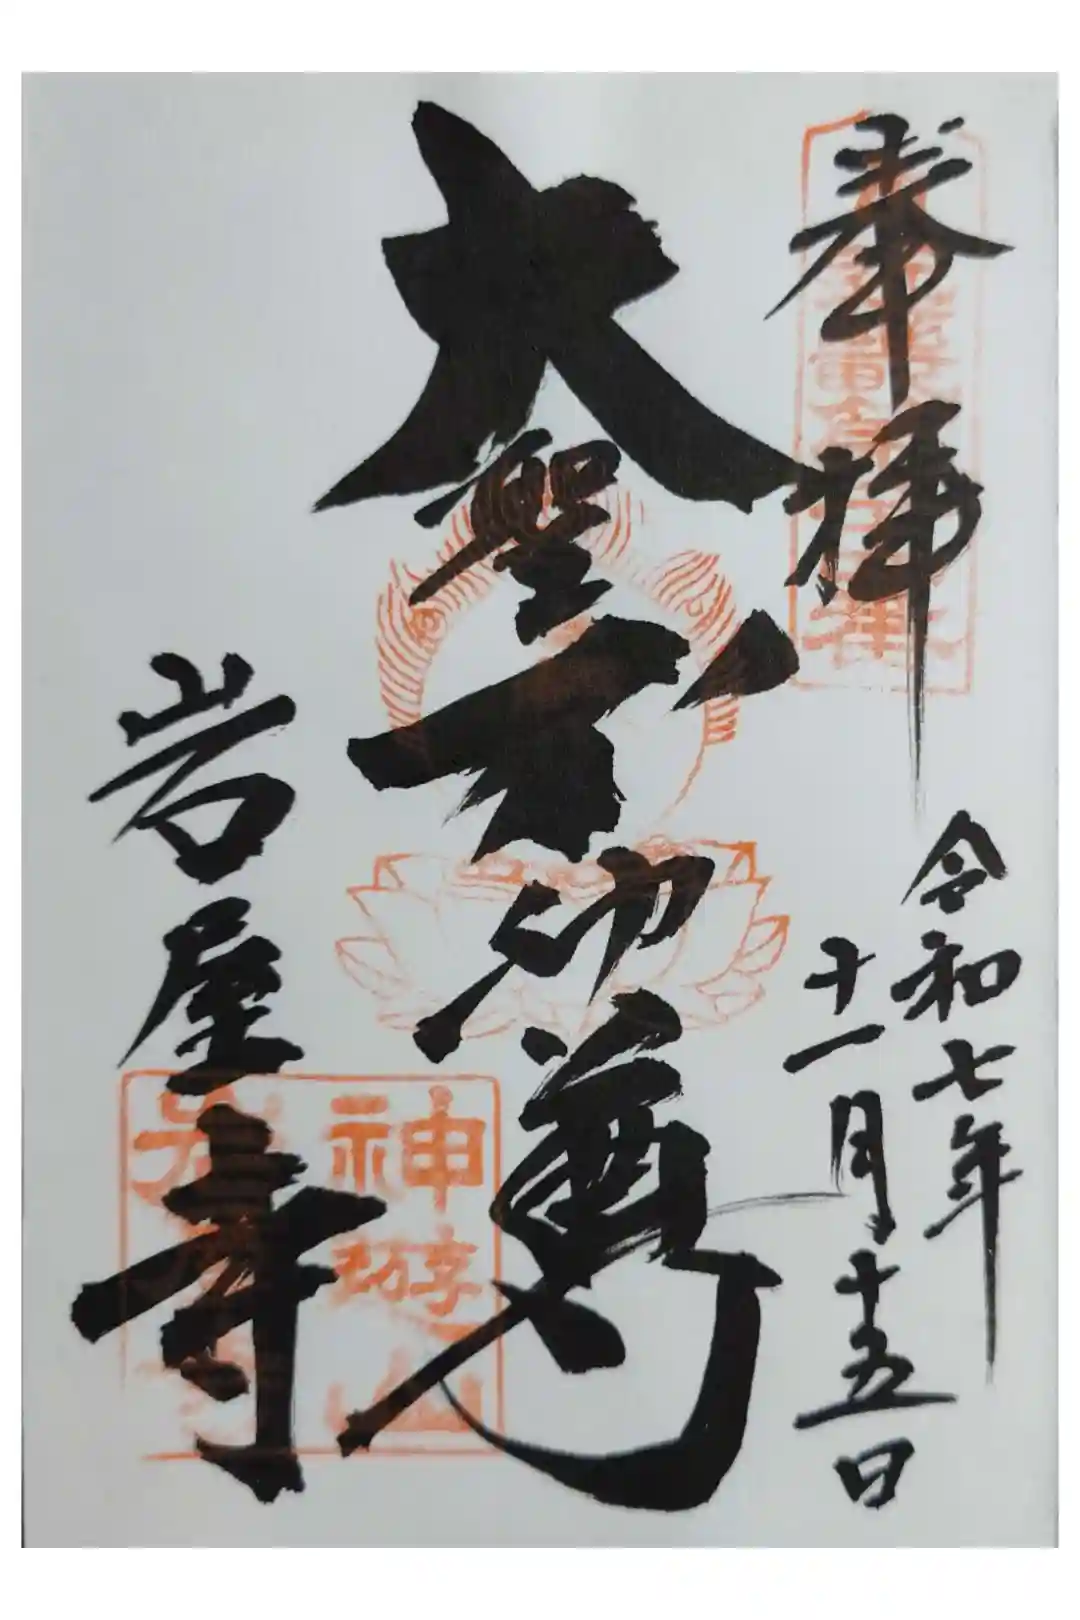 奉拝
令和七年
十一月十五日
大聖不動尊
岩屋寺
神遊山
岩屋寺